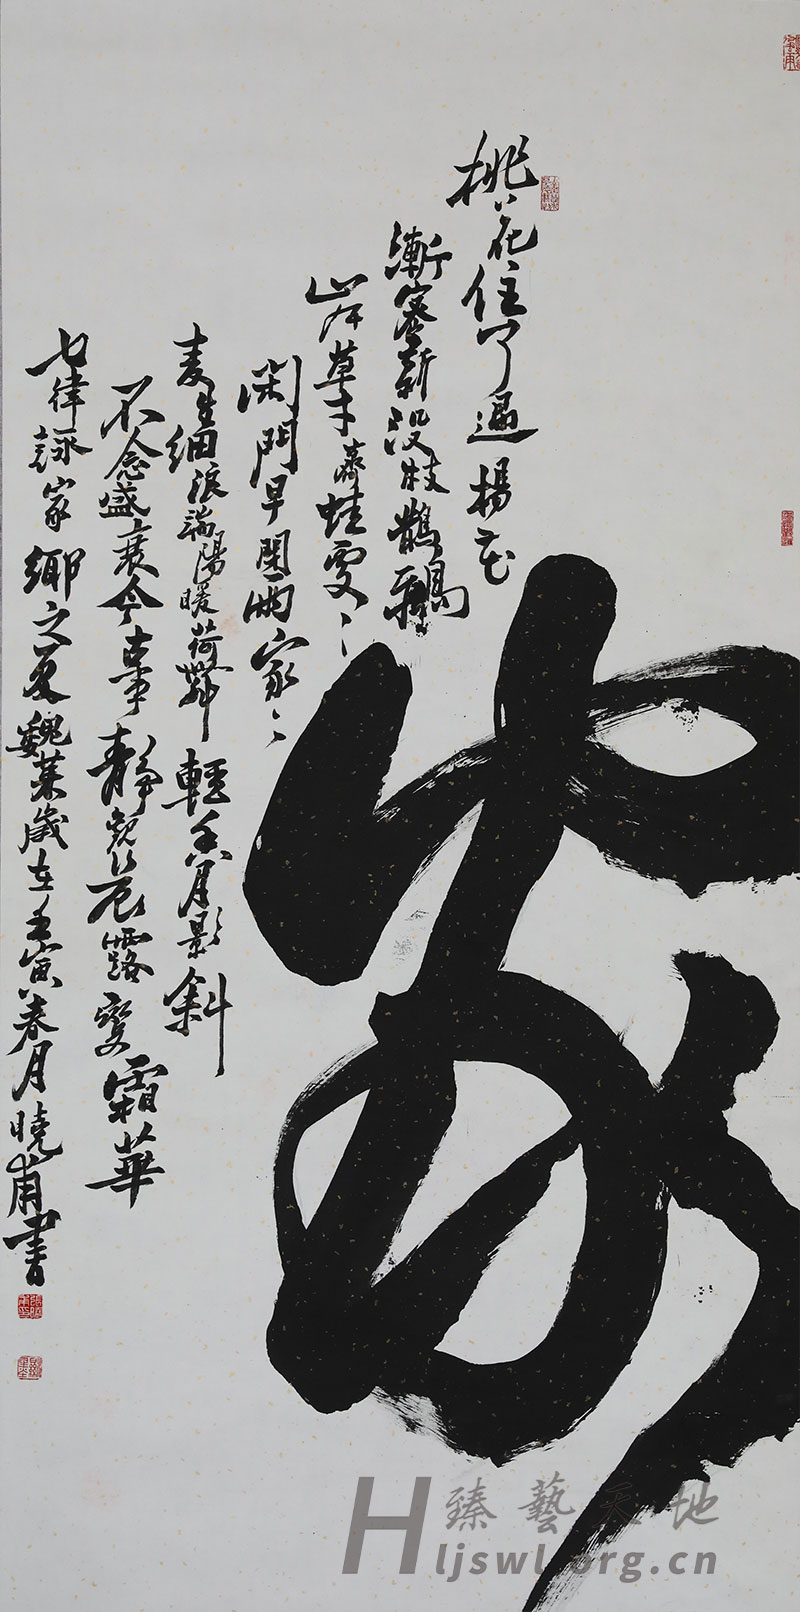 家
桃花住了遍楊花
漸密新没枝鵲鴉
岸草才齊蛙處〻
閑門早閉雨家〻
麦生细浪端陽暖荷舞輕香月影斜
不念盛衰今古事靜觀花露變霜華
七律詠家鄉之夏魏萊歲在壬寅春月曉甫書
臻藝天地
Hljswl.org.cn